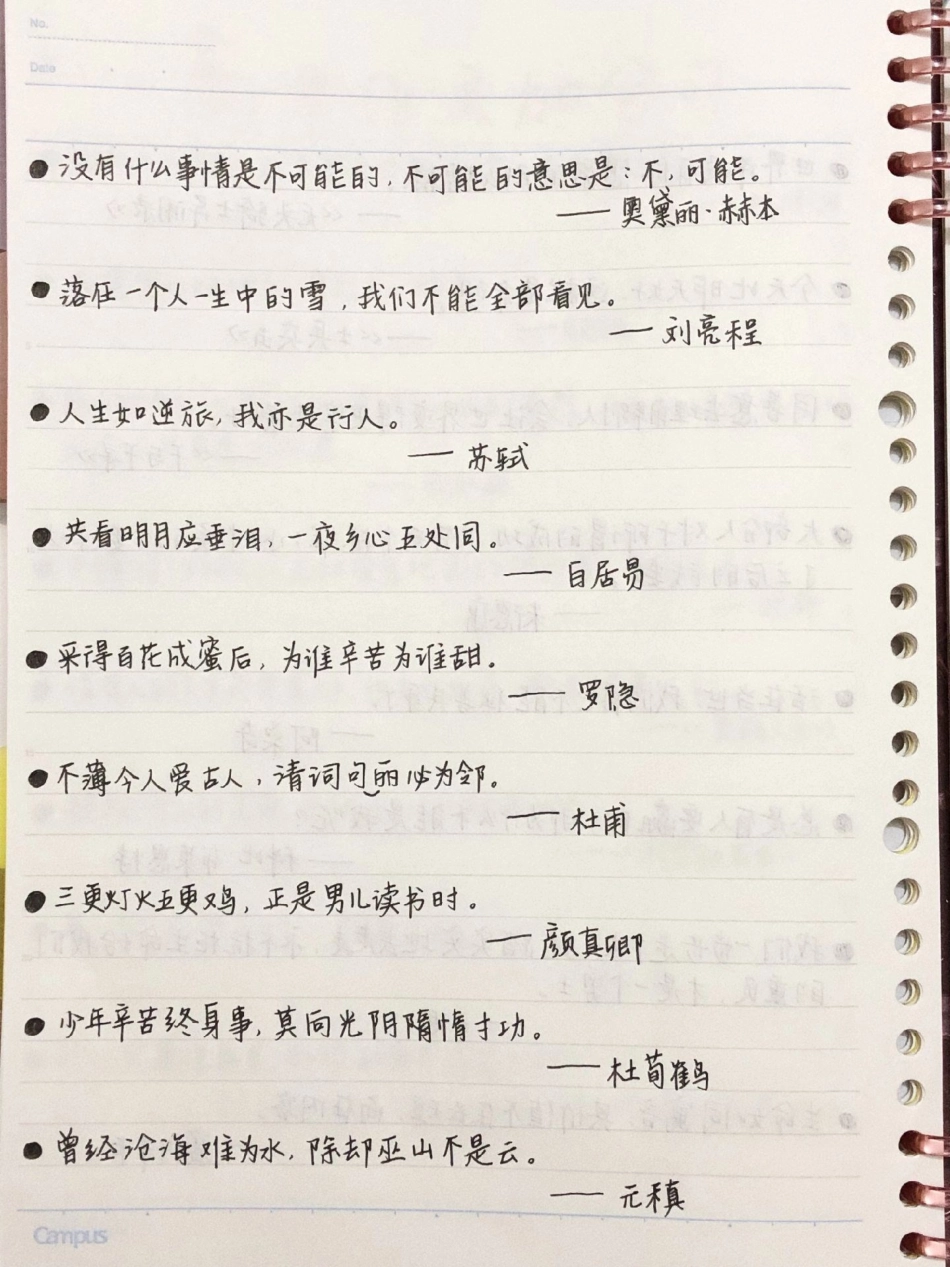 No.
Date
●没有什么事情是不可能的,不可能的意思是:不,可能。
——奥黛丽·赫本
●落在一个人一生中的雪,我们不能全部看见。
——刘亮程
●人生如逆旅,我亦是行人。
——苏轼
●共看明月应垂泪,一夜乡心五处同。
——白居易
●采得百花成蜜后,为谁辛苦为谁甜。
——罗隐
●不薄今人爱古人,清词句丽必为邻。
——杜甫
●三更灯火五更鸡,正是男儿读书时。
——颜真卿
●少年辛苦终身事,莫向光阴隋惰寸功。
——杜荀鹤
●曾经沧海难为水,除却巫山不是云。
——元稹
Campus